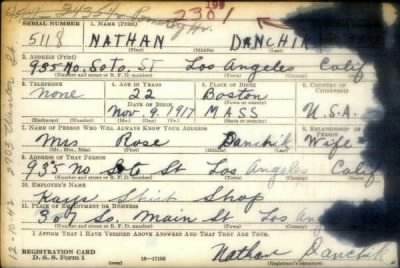 2301 199
SERIAL NUMBER 1. NAME (Print)
5118 NATHAN DANCHIK
(First) (Middle) (Last)
2. ADDRESS (Print)
935 No. Soto. ST Los Angeles Calif
(Number and street or R. F. D. number) (Town) (County) (State)
3. TELEPHONE 4. AGE IN YEARS 5. PLACE OF BIRTH 6. COUNTRY OF CITIZENSHIP
none 22 Boston
DATE OF BIRTH (Town or county)
Nov. 9, 1917 MASS U.S.A.
(Exchange) (Number) (Mo.) (Day) (Yr.) (State or country)
7. NAME OF PERSON WHO WILL ALWAYS KNOW YOUR ADDRESS 8. RELATIONSHIP OF
Mrs Rose Danchik Wife
(Mr., Mrs., Miss) (First) (Middle) (Last)
9. ADDRESS OF THAT PERSON
935 No Soto St Los Angeles Calif
(Number and street or R. F. D. number) (Town) (County) (State)
10. EMPLOYER'S NAME
Kaye Shirt Shop
11. PLACE OF EMPLOYMENT OR BUSINESS
307 So. Main St Los Ang
(Number and street or R. F. D. number) (Town)
I AFFIRM THAT I HAVE VERIFIED ABOVE ANSWERS AND THAT THEY ARE TRUE.
REGISTRATION CARD
D. S. S. Form 1 16—17105 Nathan Danchik
12-10-42